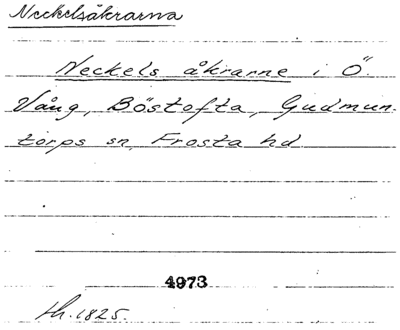 Neckelsåkrarna
Neckels åkrarne i Ö.
Vång, Böstofta, Gudmun-
torps sn, Frosta hd
4973
lh. 1825.